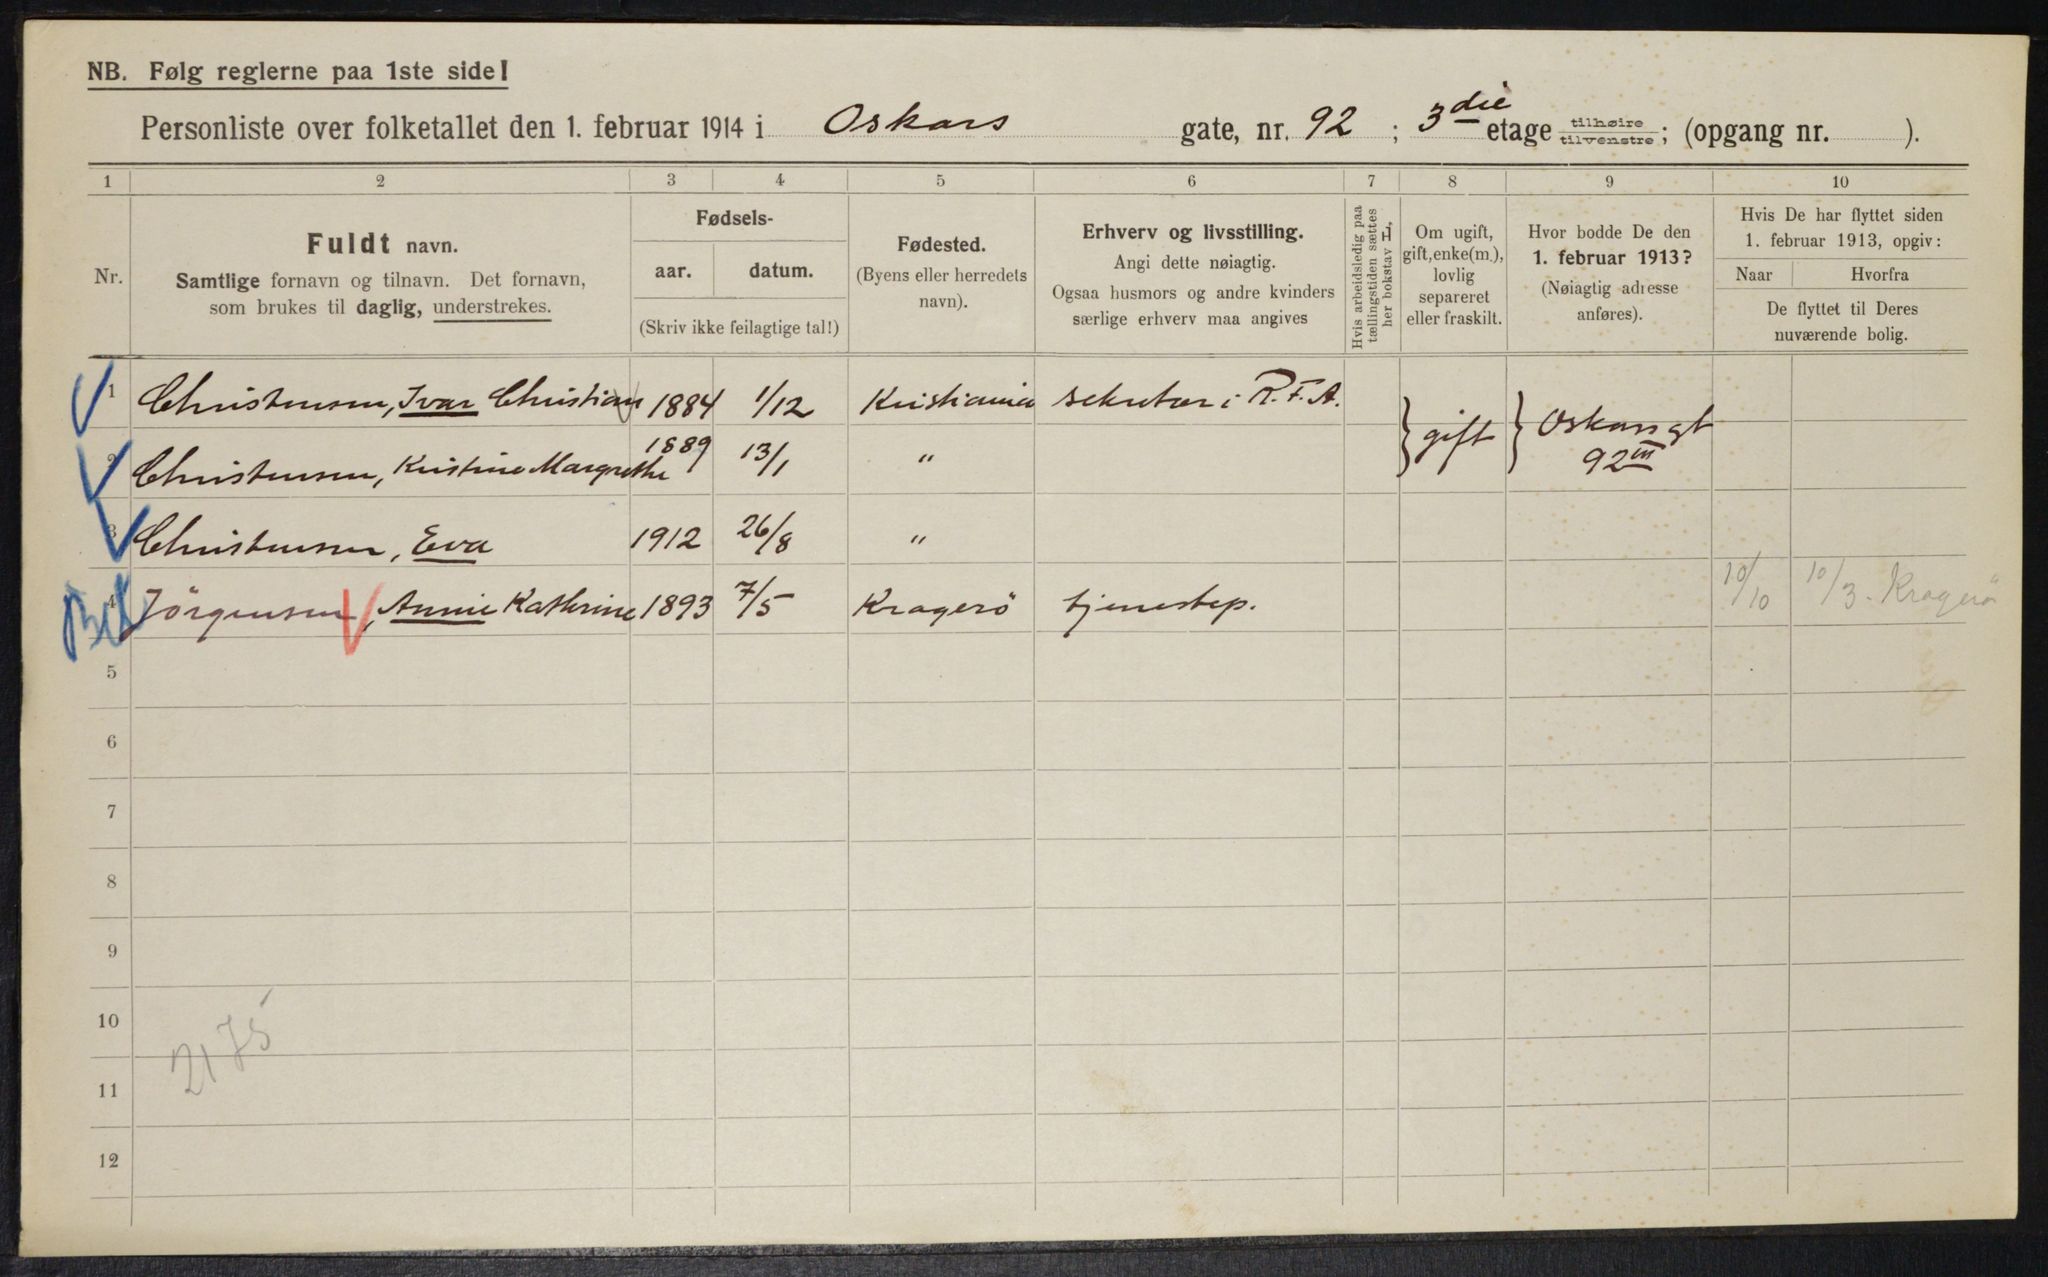 NB. Følg reglerne paa 1ste side!
Personliste over folketallet den 1. februar 1914 i Oskars gate, nr. 92 ; 3die etage tilhøire/tilvenstre; (opgang nr. ).
1 2 3 4 5 6 7 8 9 10
Nr.
Fuldt navn.
Samtlige fornavn og tilnavn. Det fornavn,
som brukes til daglig, understrekes.
Fødsels-
aar. datum.
(Skriv ikke feilagtige tal!)
Fødested.
(Byens eller herredets
navn).
Erhverv og livsstilling.
Angi dette nøiagtig.
Ogsaa husmors og andre kvinders
særlige erhverv maa angives
Hvis arbeidsledig paa
tællingstiden sættes
her bokstav L,
Om ugift,
gift, enke(m.),
lovlig
separeret
eller fraskilt.
Hvor bodde De den
1. februar 1913?
(Nøiagtig adresse
anføres).
Hvis De har flyttet siden
1. februar 1913, opgiv:
Naar Hvorfra
De flyttet til Deres
nuværende bolig.
1 Christensen, Ivar Christian 1884 1/12 Kristiania sekretær i R.F.A. } gift } Oskarsgt 92 III
2 Christensen, Kristine Margrethe 1889 13/1 "
3 Christensen, Eva 1912 26/8 "
4 Jörgensen, Annie Kathrine 1893 7/5 Kragerö tjenestep. 10/10 10/3. Kragerö
5
6
7
8
9
10
2175
11
12